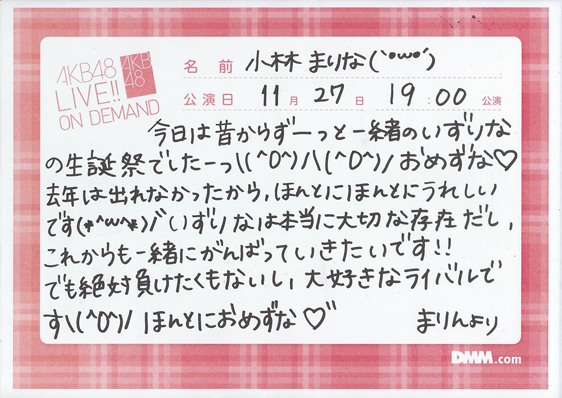 AKB48
LIVE!!
ON DEMAND
AKB
48
名前 小林まりな(`•ω•´)
公演日 11月27日 19:00公演
今日は昔からずーっと一緒のいずりな
の生誕祭でしたーっ\(^O^)/\(^O^)/おめずな♡
去年は出れなかったから,ほんとにほんとにうれしい
です(*^ω^*)/゛いずりなは本当に大切な存在だし,
これからも一緒にがんばっていきたいです!!
でも絶対負けたくもないし、大好きなライバルで
す\(^O^)/ ほんとにおめずな♡゛ まりんより
DMM.com